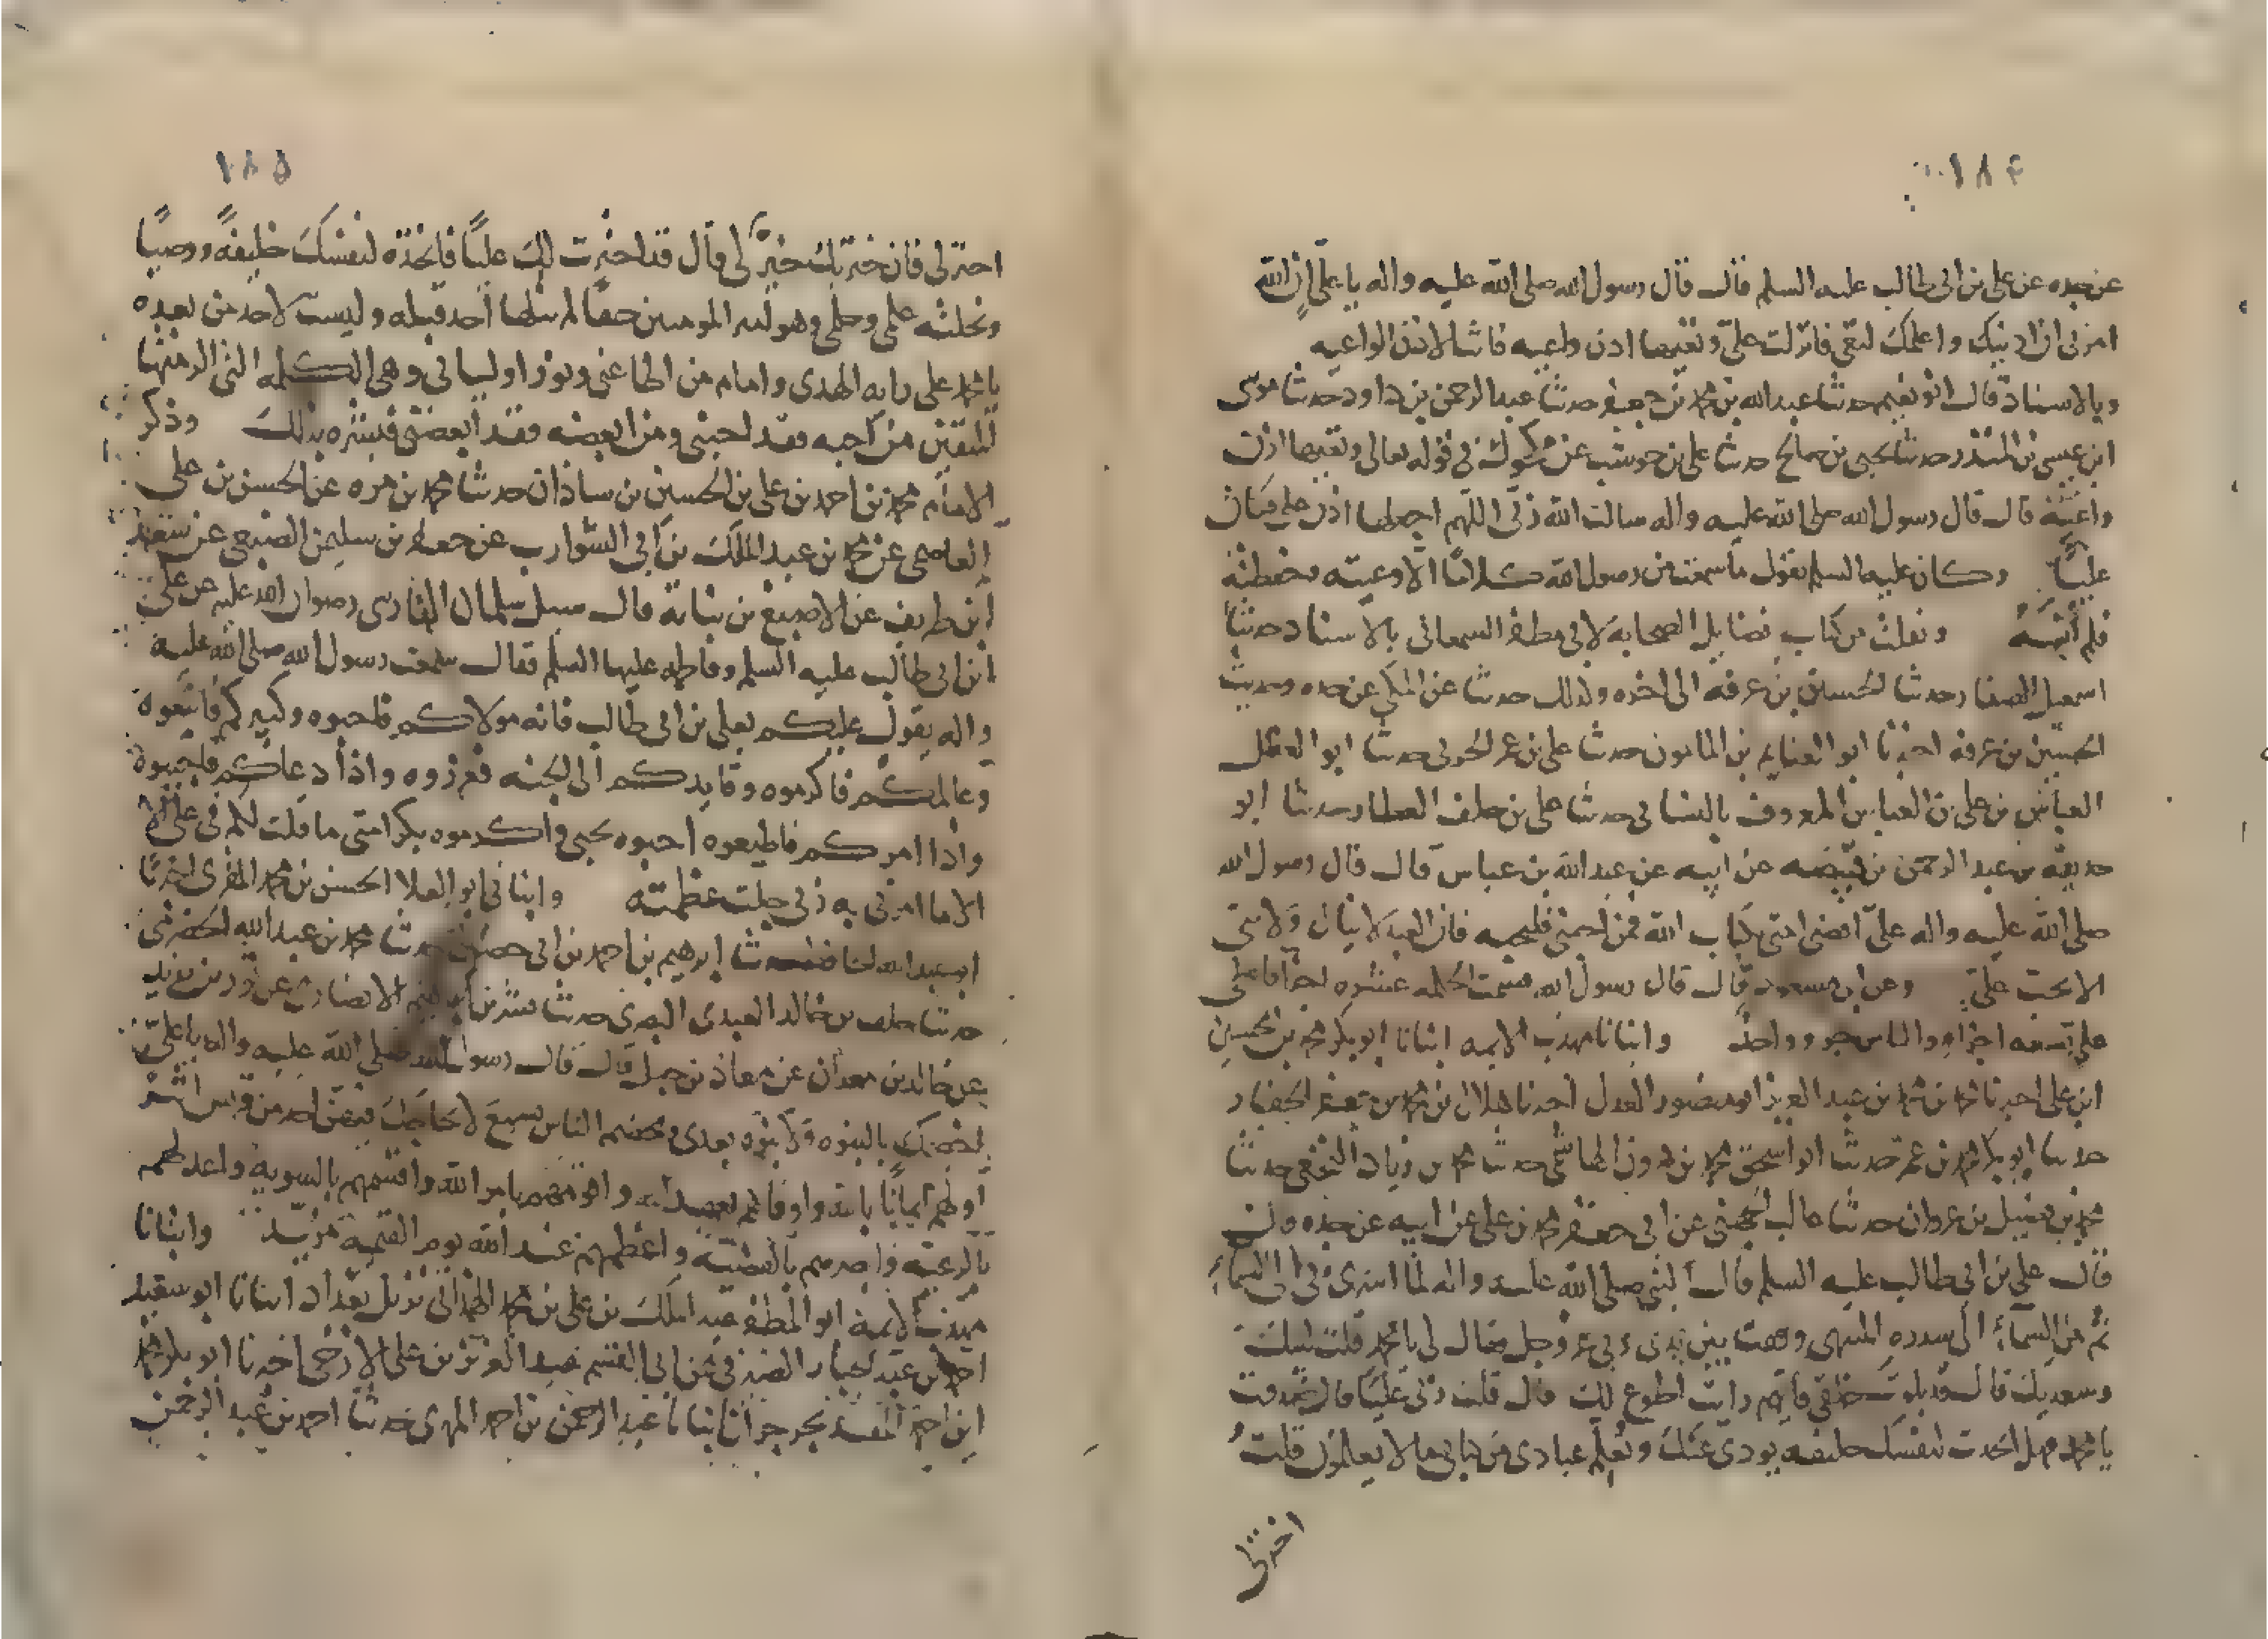 ١٨٤
عن جده عن على بن ابى طالب عليه السلم قال قال رسول الله صلى الله عليه واله يا على ان الله
امرنى ان ادنيك واعلمك لتعى فانزلت على وتعيها اذن واعيه فانت الاذن الواعيه
وبالاسناد قال ابو نعيم حدثنا عبد الله بن محمد بن جعفر حدثنا عبد الرحمن بن داود حدثنا موسى
ابن عيسى بن المنذر حدثنا يحيى بن صالح حدثنا على بن حوشب عن مكحول فى قوله تعالى وتعيها اذن
واعية قال قال رسول الله صلى الله عليه واله سالت الله ربى اللهم اجعلها اذن على فكان
عليا وكان عليه السلم يقول ما سمعت من رسول الله كلاما الا وعيته وحفظته
فلم انسه ونقلت من كتاب فضايل الصحابة لابى مظفر السمعانى بالاسناد حدثنا
اسمعيل الصفار حدثنا الحسين بن عرفة الى اخره ولذلك حدثنا عن المكى عن جده وحديث
الحسين بن عرفة اخبرنا ابو الغنايم بن المامون حدثنا على بن عمر الحربى حدثنا ابو الفضل
العباس بن على بن العباس المعروف بالنسائى حدثنا على بن خلف العطار حدثنا ابو
حذيفة بن عبد الرحمن بن قبيصه عن ابيه عن عبد الله بن عباس قال قال رسول الله
صلى الله عليه واله على اقضى امتى بكتاب الله فمن احبنى فليحبه فان العبد لا ينال ولايتى
الا بحب على وعن ابن مسعود قال قال رسول الله قسمت الحكمه عشره اجزا فاعطى
على تسعه اجزا والناس جزو واحد وانبانا مهذب الايمه انبانا ابو بكر محمد بن الحسين
ابن على اخبرنا محمد بن محمد بن عبد العزيز ابو منصور العدل اخبرنا هلال بن محمد بن جعفر الحفار
حدثنا ابو بكر محمد بن عمر حدثنا ابو اسحق محمد بن هرون الهاشمى حدثنا محمد بن زياد النخعى حدثنا
محمد بن فضيل بن غزوان حدثنا غالب الجهنى عن ابى جعفر محمد بن على عن ابيه عن جده قال
قال على بن ابى طالب عليه السلم قال النبى صلى الله عليه واله لما اسرى بى الى السماء
ثم من السماء الى سدره المنتهى وقفت بين يدى ربى عز وجل فقال لى يا محمد قلت لبيك
وسعديك قال قد بلوت خلقى فايهم رايت اطوع لك قال قلت ربى عليا قال صدقت
يا محمد فهل اتخذت لنفسك خليفه يودى عنك ويعلم عبادى من كتابى ما لا يعلمون قلت
اختر لى
١٨٥
اختر لى فان خيرتك خير لى قال قد اخترت لك عليا فاتخذه لنفسك خليفة ووصيا
ونحلته علمى وحلمى وهو امير المومنين حقا لم ينلها احد قبله وليست لاحد من بعده
يا محمد على رايه الهدى وامام من اطاعنى ونور اوليائى وهى الكلمه التى الزمتها
للمتقين من احبه فقد احبنى ومن ابغضه فقد ابغضنى فبشره بذلك وذكر
الامام محمد بن احمد بن على بن الحسين بن شاذان حدثنا محمد بن مره عن الحسن بن على
العاصمى عن محمد بن عبد الملك بن ابى الشوارب عن جعفر بن سليمن الضبعى عن سعد
ابن طريف عن الاصبغ بن نباتة قال سيل سلمان الفارسى رضوان الله عليه عن على
ابن ابى طالب عليه السلم وفاطمه عليها السلم فقال سمعت رسول الله صلى الله عليه
واله يقول عليكم بعلى بن ابى طالب فانه مولاكم فاحبوه وكبيركم فاتبعوه
وعالمكم فاكرموه وقايدكم الى الجنه فعززوه واذا دعاكم فاجيبوه
واذا امركم فاطيعوه احبوه بحبى واكرموه بكرامتى ما قلت لكم فى على الا
الا ما امرنى به ربى جلت عظمته وانبانى ابو العلا الحسن بن محمد المقرى اخبرنا
ابو عبد الله حدثنا ابرهيم بن احمد بن ابى حصين حدثنا محمد بن عبد الله الحضرمى
حدثنا خلف بن خالد العبدى البصرى حدثنا بشر بن ابرهيم الانصارى عن ثور بن يزيد
عن خالد بن معدان عن معاذ بن جبل قال قال رسول الله صلى الله عليه واله يا على
اخصمك بالنبوه ولا نبوه بعدى وتخصم الناس بسبع لا يحاجك فيهن احد من قريش انت
اولهم ايمانا بالله واوفاهم بعهد الله واقومهم بامر الله واقسمهم بالسوية واعدلهم
بالرعية وابصرهم بالقضية واعظمهم عند الله يوم القيمة مزية وانبانا
مهذب الايمة ابو المظفر عبد الملك بن على بن محمد الهمدانى نزيل بغداد انبانا ابو سعيد
احمد بن عبد الجبار الصيرفى عن ابى القسم عبد العزيز بن على الازجى اخبرنا ابو بكر محمد
ابن احمد المفيد بجرجرايا انبانا عبد الرحمن بن احمد المهرى حدثنا احمد بن عبد الرحمن